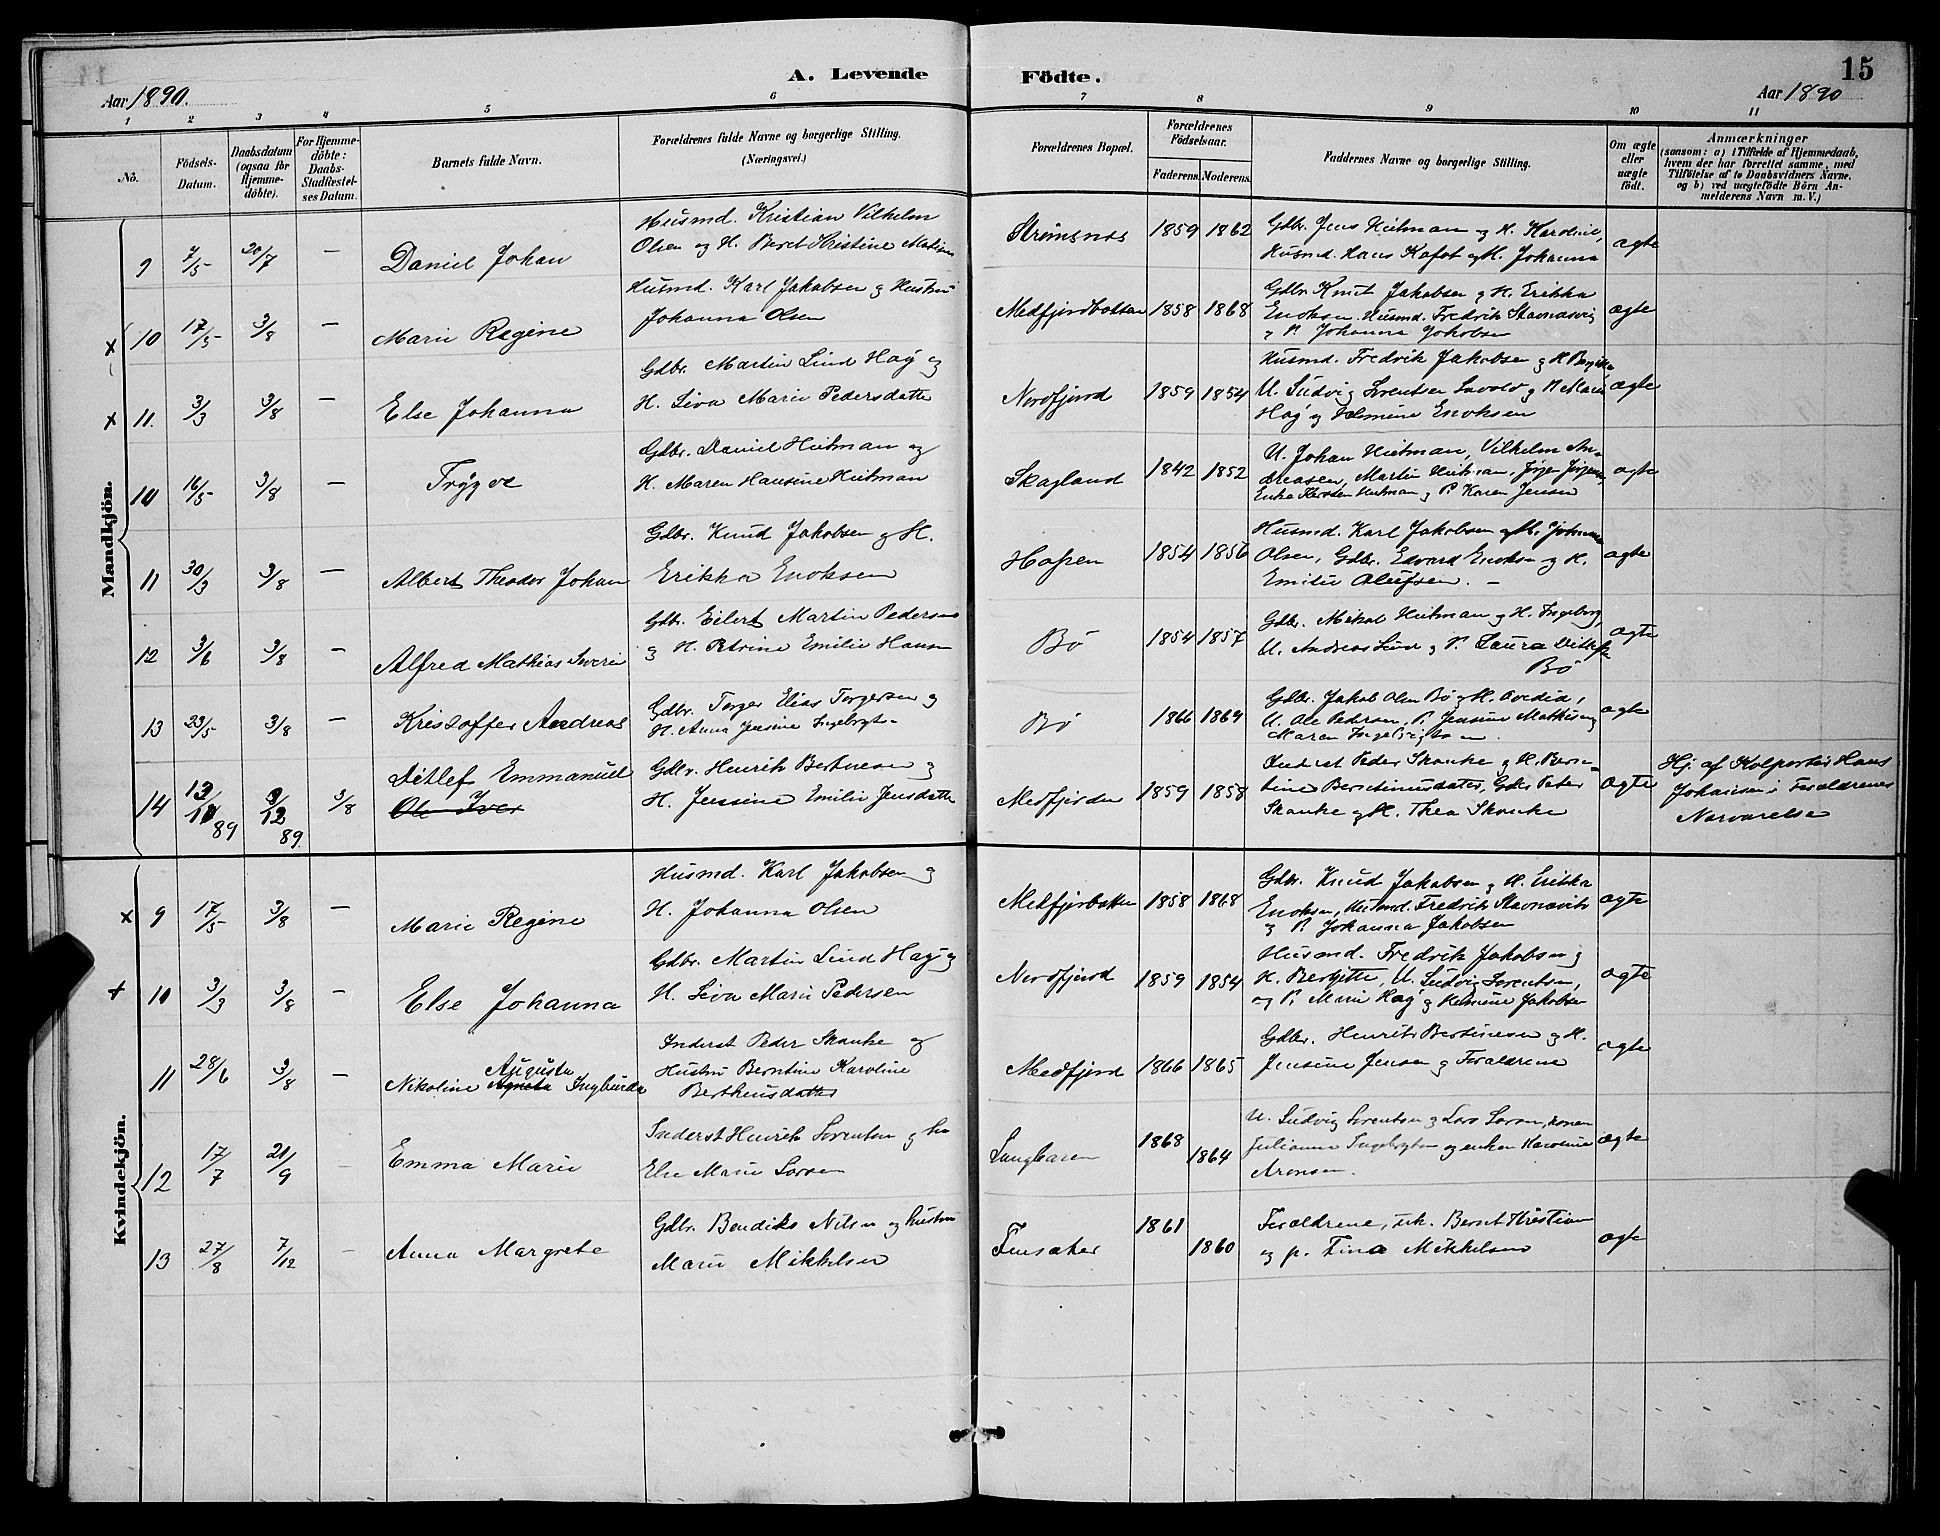 A. Levende Födte.
15
Aar 1890.
Aar 1890
1 2 3 4 5 6 7 8 9 10 11
No.
Födsels-Datum.
Daabsdatum (ogsaa for Hjemme-döbte).
For Hjemme-döbte: Daabs-Stadfæstel-ses Datum.
Barnets fulde Navn.
Forældrenes fulde Navne og borgerlige Stilling. (Næringsvei.)
Forældrenes Bopæl.
Forældrenes Födselsaar.
Faderens. Moderens.
Faddernes Navne og borgerlige Stilling.
Om ægte eller uægte födt.
Anmærkninger
(saasom: a) i Tilfælde af Hjemmedaab, hvem der har forrettet samme, med Tilföielse af to Daabsvidners Navne, og b) ved uægtefödte Börn An-melderens Navn m. V.)
Mandkjön.
9 7/5 20/7 — Daniel Johan
Husmd. Kristian Vilhelm
Olsen og H. Beret Kristine
Strømsnes 1859 1862
Gdbr. Jens Heitman og H. Karoline,
Husmd. Hans Kofot og H. Johanna
ægte
x 10 17/5 3/8 — Marie Regine
Husmd. Karl Jakobsen og Hustru
Johanna Olsen
Medfjordbotten 1858 1868
Gdbr. Knut Jakobsen og H. Erikka
Enoksen, Husmd. Fredrik
og P. Johanna Jakobsen
ægte
x 11. 3/3 3/8 — Else Johanna
Gdbr. Martin Lind Hag og
H. Liva Marie Pedersdatter
Nordfjord 1859 1854
Husmd. Fredrik Jakobsen og H.
U. Ludvig Lorentsen og P. Marie
Hag og Enoksen
ægte
10 16/5 3/8 — Trygve
Gdbr. Daniel Heitman og
H. Maren Hansine Heitman
Skagland 1842 1852
U. Johan Heitman, Vilhelm An-
dreasen, Martin Heitman,
Enke Heitman og P. Karen Jensen
ægte
11 30/3 3/8 — Albert Theodor Johan
Gdbr. Knud Jakobsen og H.
Erikka Enoksen
Hopen 1854 1856
Husmd. Karl Jakobsen og H. Johanna
Olsen, Gdbr. Edvard Enoksen og H.
Emilie Olufsen. —
ægte
12 3/6 3/8 — Alfred Mathias Severin
Gdbr. Eilert Martin Pedersen
og H. Petrine Emilie Hansen
Bø 1854 1857
Gdbr. Mikal Heitman og H. Ingeborg,
U. Andreas Lind og P. Laura
Bø
ægte
13 23/5 3/8 — Kristoffer Andreas
Gdbr. Torger Elias Torgersen og
H. Anna Jensine Ingebrigts-
Bø 1866 1869
Gdbr. Jakob Olsen Bø og H. Ovedia,
U. Ole Pedersen, P. Jensine Mathisen og
Maren Ingebrigtsen.
ægte
14 13/11 89 3/12 89. 3/8 Ditlef Emmanuel
Ole Iver
Gdbr. Henrik Bertheusen og
H. Jensine Emilie Jensdatter
Medfjorden 1859 1858
Inderst Peder Skanke og H. Bern-
tine Bertheusdatter, Gdbr Peter
Skanke og H. Thea Skanke
ægte
Hj. af Kolportør Hans
Johansen i Forældrenes
Nærværelse
Kvindekjön.
x 9 17/5 3/8 — Marie Regine
Husmd. Karl Jakobsen og
H. Johanna Olsen
Medfjorbotten 1858 1868
Gdbr. Knud Jakobsen og H. Erikka
Enoksen, Husmd. Fredrik
og P. Johanna Jakobsen
ægte
x 10 3/3 3/8 — Else Johanna
Gdbr. Martin Lind Hag og
H. Liva Marie Pedersen
Nordfjord 1859 1854
Husmd. Fredrik Jakobsen og
H. Berhitte, U. Ludvig Lorentsen,
og P. Marie Hag og Helmine Jakobsen
ægte
11 28/6 3/8 — Augusta
Nikoline Agneta Ingburda
Inderst Peder Skanke og
Hustru Berntine Karoline
Bertheusdatter
Medfjord 1866 1865
Gdbr. Henrik Bertheusen og H.
Jensine Jensen og Forældrene
ægte
12 17/7 21/9 — Emma Marie
Inderst Henrik Lorentsen og hu
Else Marie Larsen
Langbaren 1868 1864
U. Ludvig Lorentsen og Lars Larsen, konen
Julianna Ingebrigtsen og enken Karoline
Aronsen.
ægte
13 27/8 7/12 — Anna Margrete
Gdbr. Bendiks Nilsen og hustru
Marie Mikkelsen
Finsæter 1861 1860
Forældrene, uk. Bernt Kristian
og p. Tina Mikkelsen
ægte